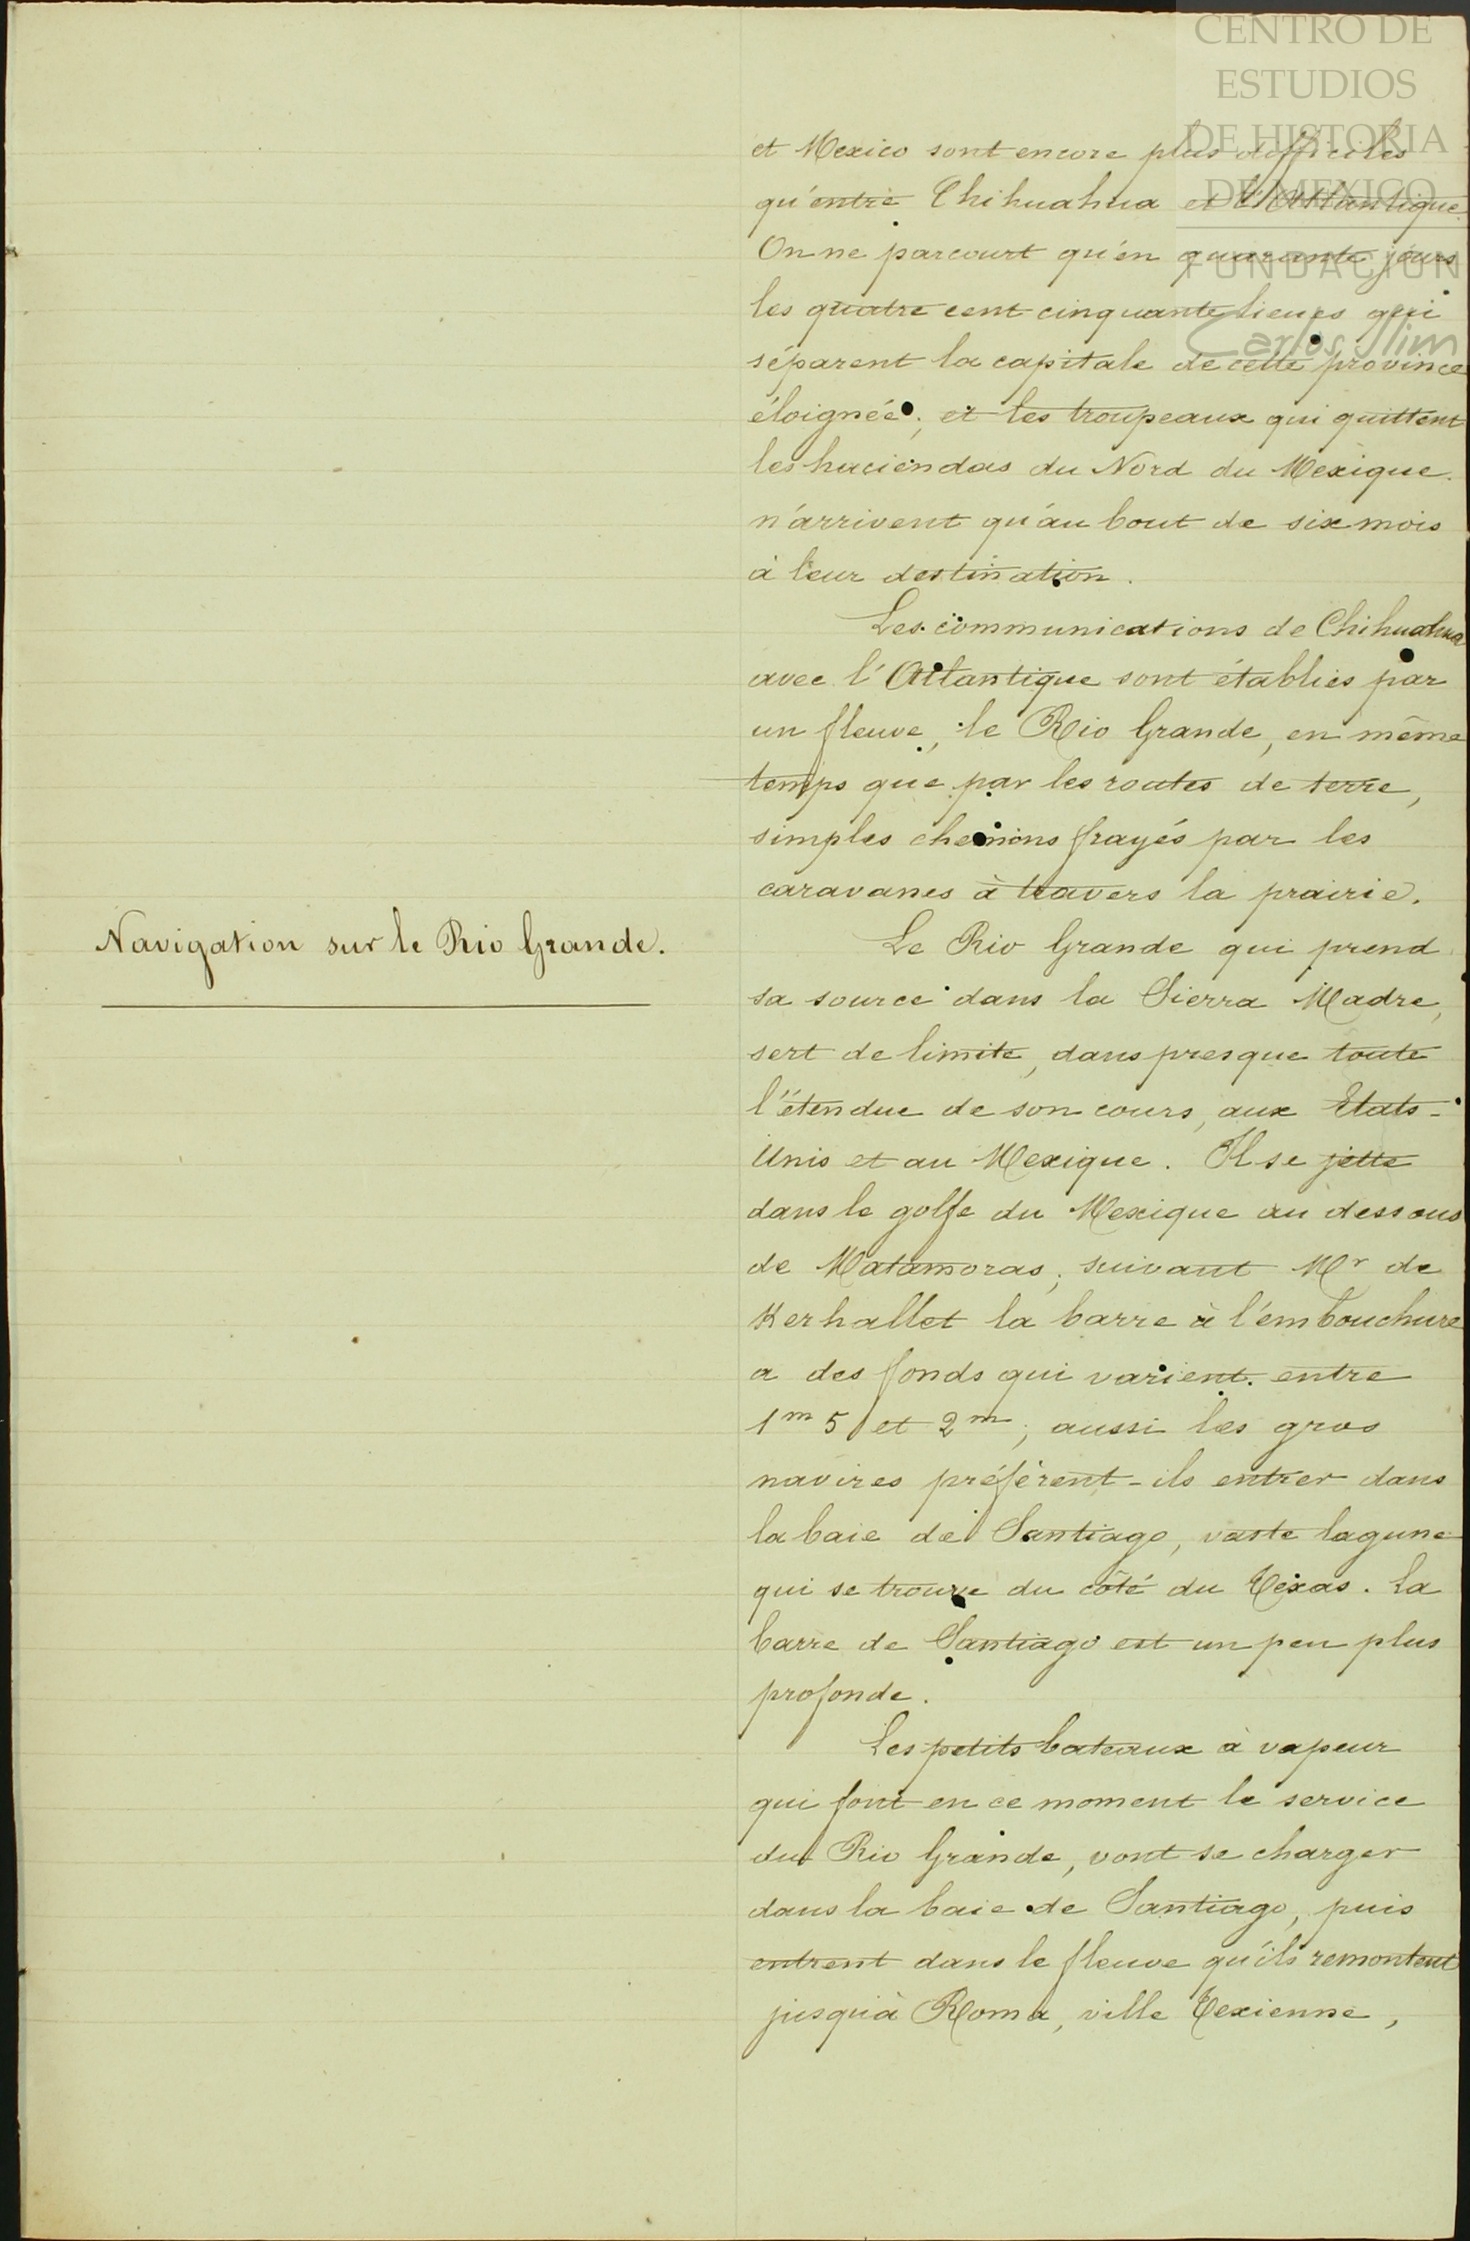 CENTRO DE
ESTUDIOS
DE HISTORIA
DE MEXICO
FUNDACION
Carlos Slim
et Mexico sont encore plus difficiles
qu'entre Chihuahua et l'Atlantique.
On ne parcourt qu'en quarante jours
les quatre cent cinquante lieues qui
séparent la capitale de cette province
éloignée; et les troupeaux qui quittent
les haciendas du Nord du Mexique.
n'arrivent qu'au bout de six mois
à leur destination.
Les communications de Chihuahua
avec l'Atlantique sont établies par
un fleuve, le Rio Grande, en même
temps que par les routes de terre,
simples chemins frayés par les
caravanes à travers la prairie.
Navigation sur le Rio Grande.
Le Rio Grande qui prend
sa source dans la Sierra Madre,
sert de limite, dans presque toute
l'étendue de son cours, aux Etats-
Unis et au Mexique. Il se jette
dans le golfe du Mexique au dessous
de Matamoras; suivant Mr de
Kerhallet la barre à l'embouchure
a des fonds qui varient entre
1m 5 et 2m; aussi les gros
navires préfèrent-ils entrer dans
la baie de Santiago, vaste lagune
qui se trouve du côté du Texas. La
barre de Santiago est un peu plus
profonde.
Les petits bateaux à vapeur
qui font en ce moment le service
du Rio Grande, vont se charger
dans la baie de Santiago, puis
entrent dans le fleuve qu'ils remontent
jusqu'à Roma, ville Texienne,